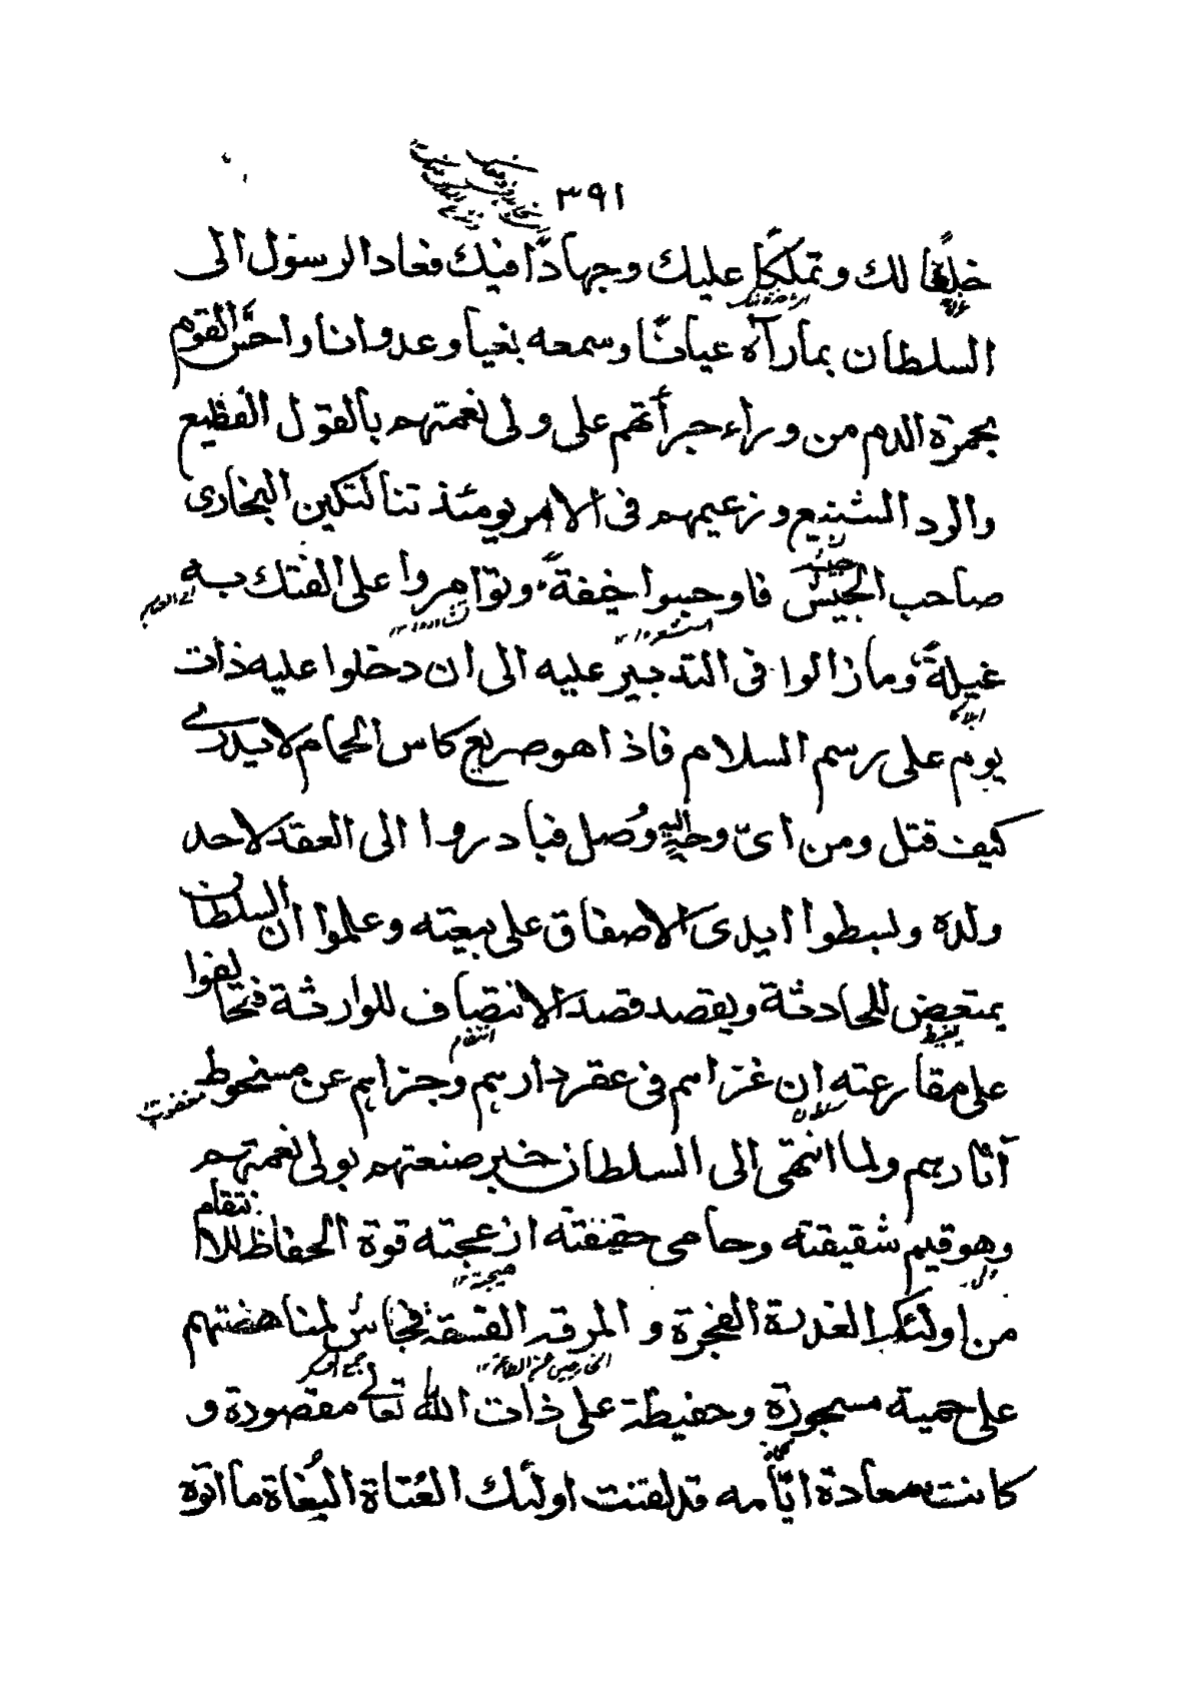 ٣٩١
خلفًا لك وتملكًا عليك وجهادًا فيك فعاد الرسول الى
السلطان بما رآه عيانًا وسمعه بغيا وعدوانا واحسّ القوم
بجمرة الدم من وراء جرأتهم على ولى نعمتهم بالقول الفظيع
والرد الشنيع وزعيمهم فى الامر يومئذ تنالتكين البخارى
صاحب الجيش فاوجسوا خيفةً وتوامروا على الفتك به
غيلةً وما زالوا فى التدبير عليه الى ان دخلوا عليه ذات
يوم على رسم السلام فاذا هو صريع كاس الحمام لا يدرى
كيف قتل ومن اىّ وجه اليه وُصل فبادروا الى العقد لاحد
ولده وبسطوا ايدى الاصفاق على بيعته وعلموا ان السلطان
يمتعض للحادثة ويقصد قصد الانتصاف للوارثة فتحالفوا
على مقارعته ان غزاهم فى عقر دارهم وجزاهم عن مسخوط
آثارهم ولما انتهى الى السلطان خبر صنعتهم بولى نعمتهم
وهو قيم شقيقته وحامى حقيقته ازعجته قوة الحفاظ للانتقام
من اولئك الغدرة الفجرة و المرقة الفسقة فجاش لمناهضتهم
على حمية مسجورة وحفيظة على ذات الله تعالى مقصورة و
كانت سعادة ايّامه قد لفتت اولئك العُتاة البُغاة ما اتوه